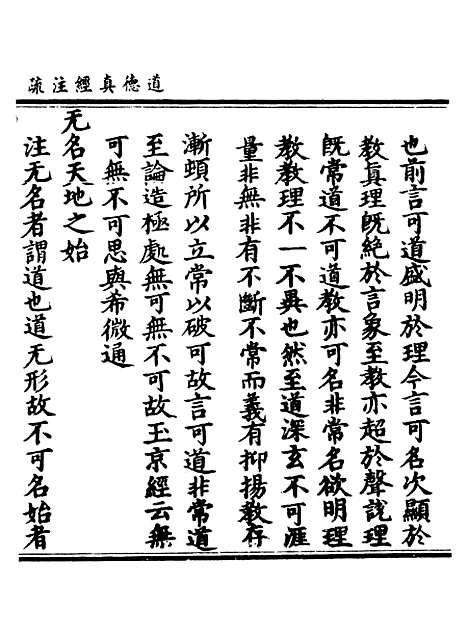 道德真經注疏
也前言可道盛明於理今言可名次顯於
教真理既絶於言象至教亦超於聲説理
既常道不可道教亦可名非常名欲明理
教教理不一不異也然至道深玄不可涯
量非無非有不斷不常而義有抑揚教存
漸頓所以立常以破可故言可道非常道
至論造極處無可無不可故玉京經云無
可無不可思與希微通
无名天地之始
注无名者謂道也道无形故不可名始者